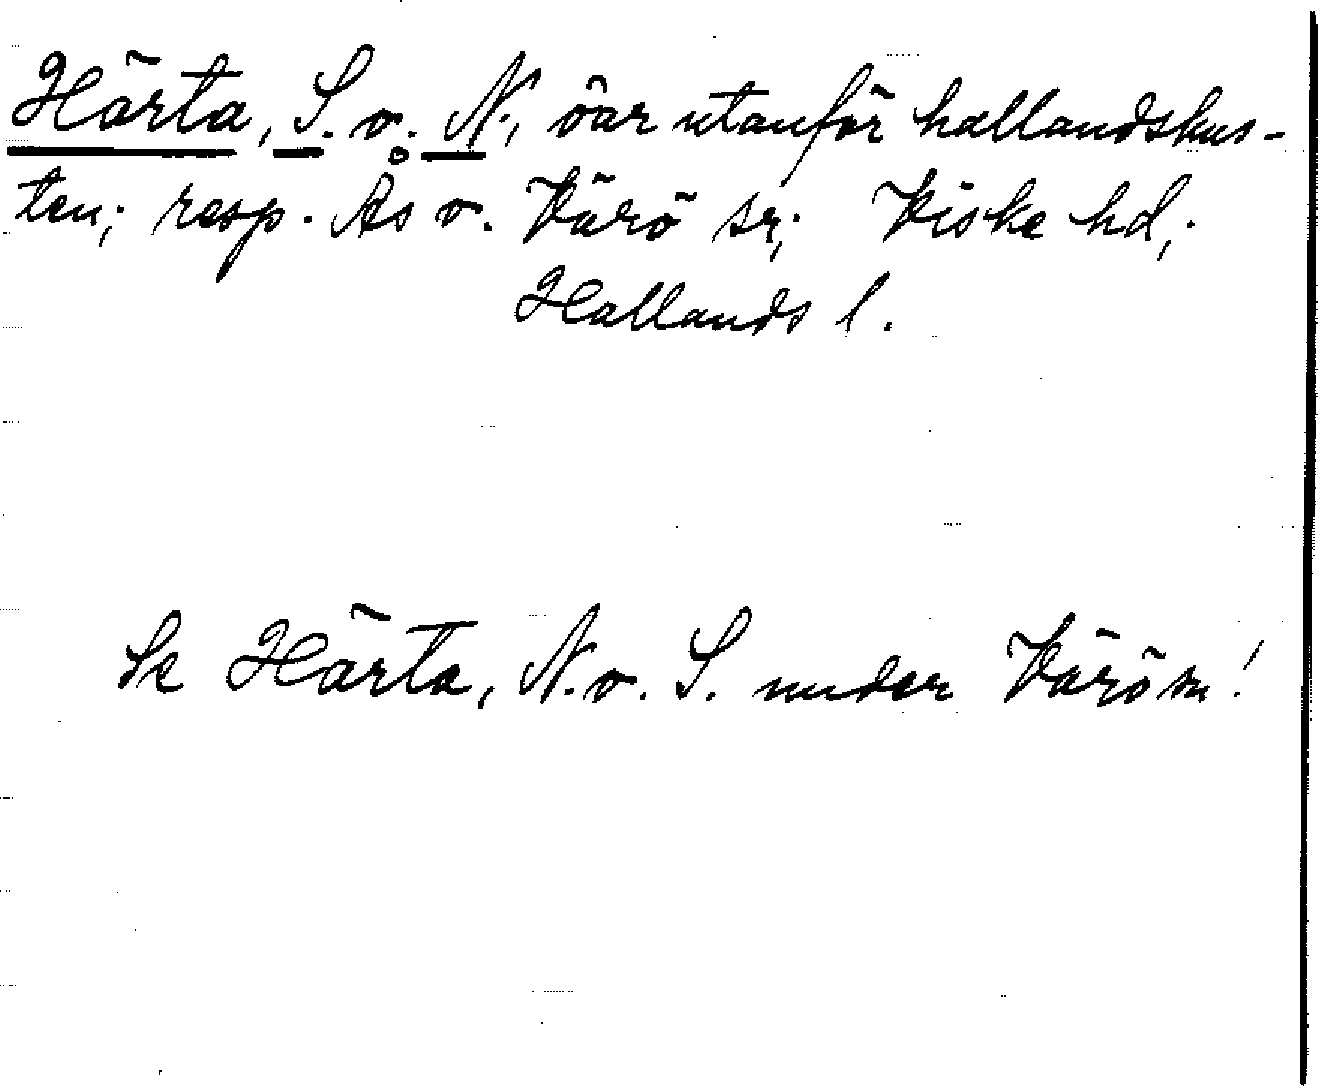 Härta, S. o. N., öar utanför hallandskus-
ten; resp. Ås o. Värö sr; Viske hd,.
Hallands l.
Se Härta, N. o. S. under Värö sn!